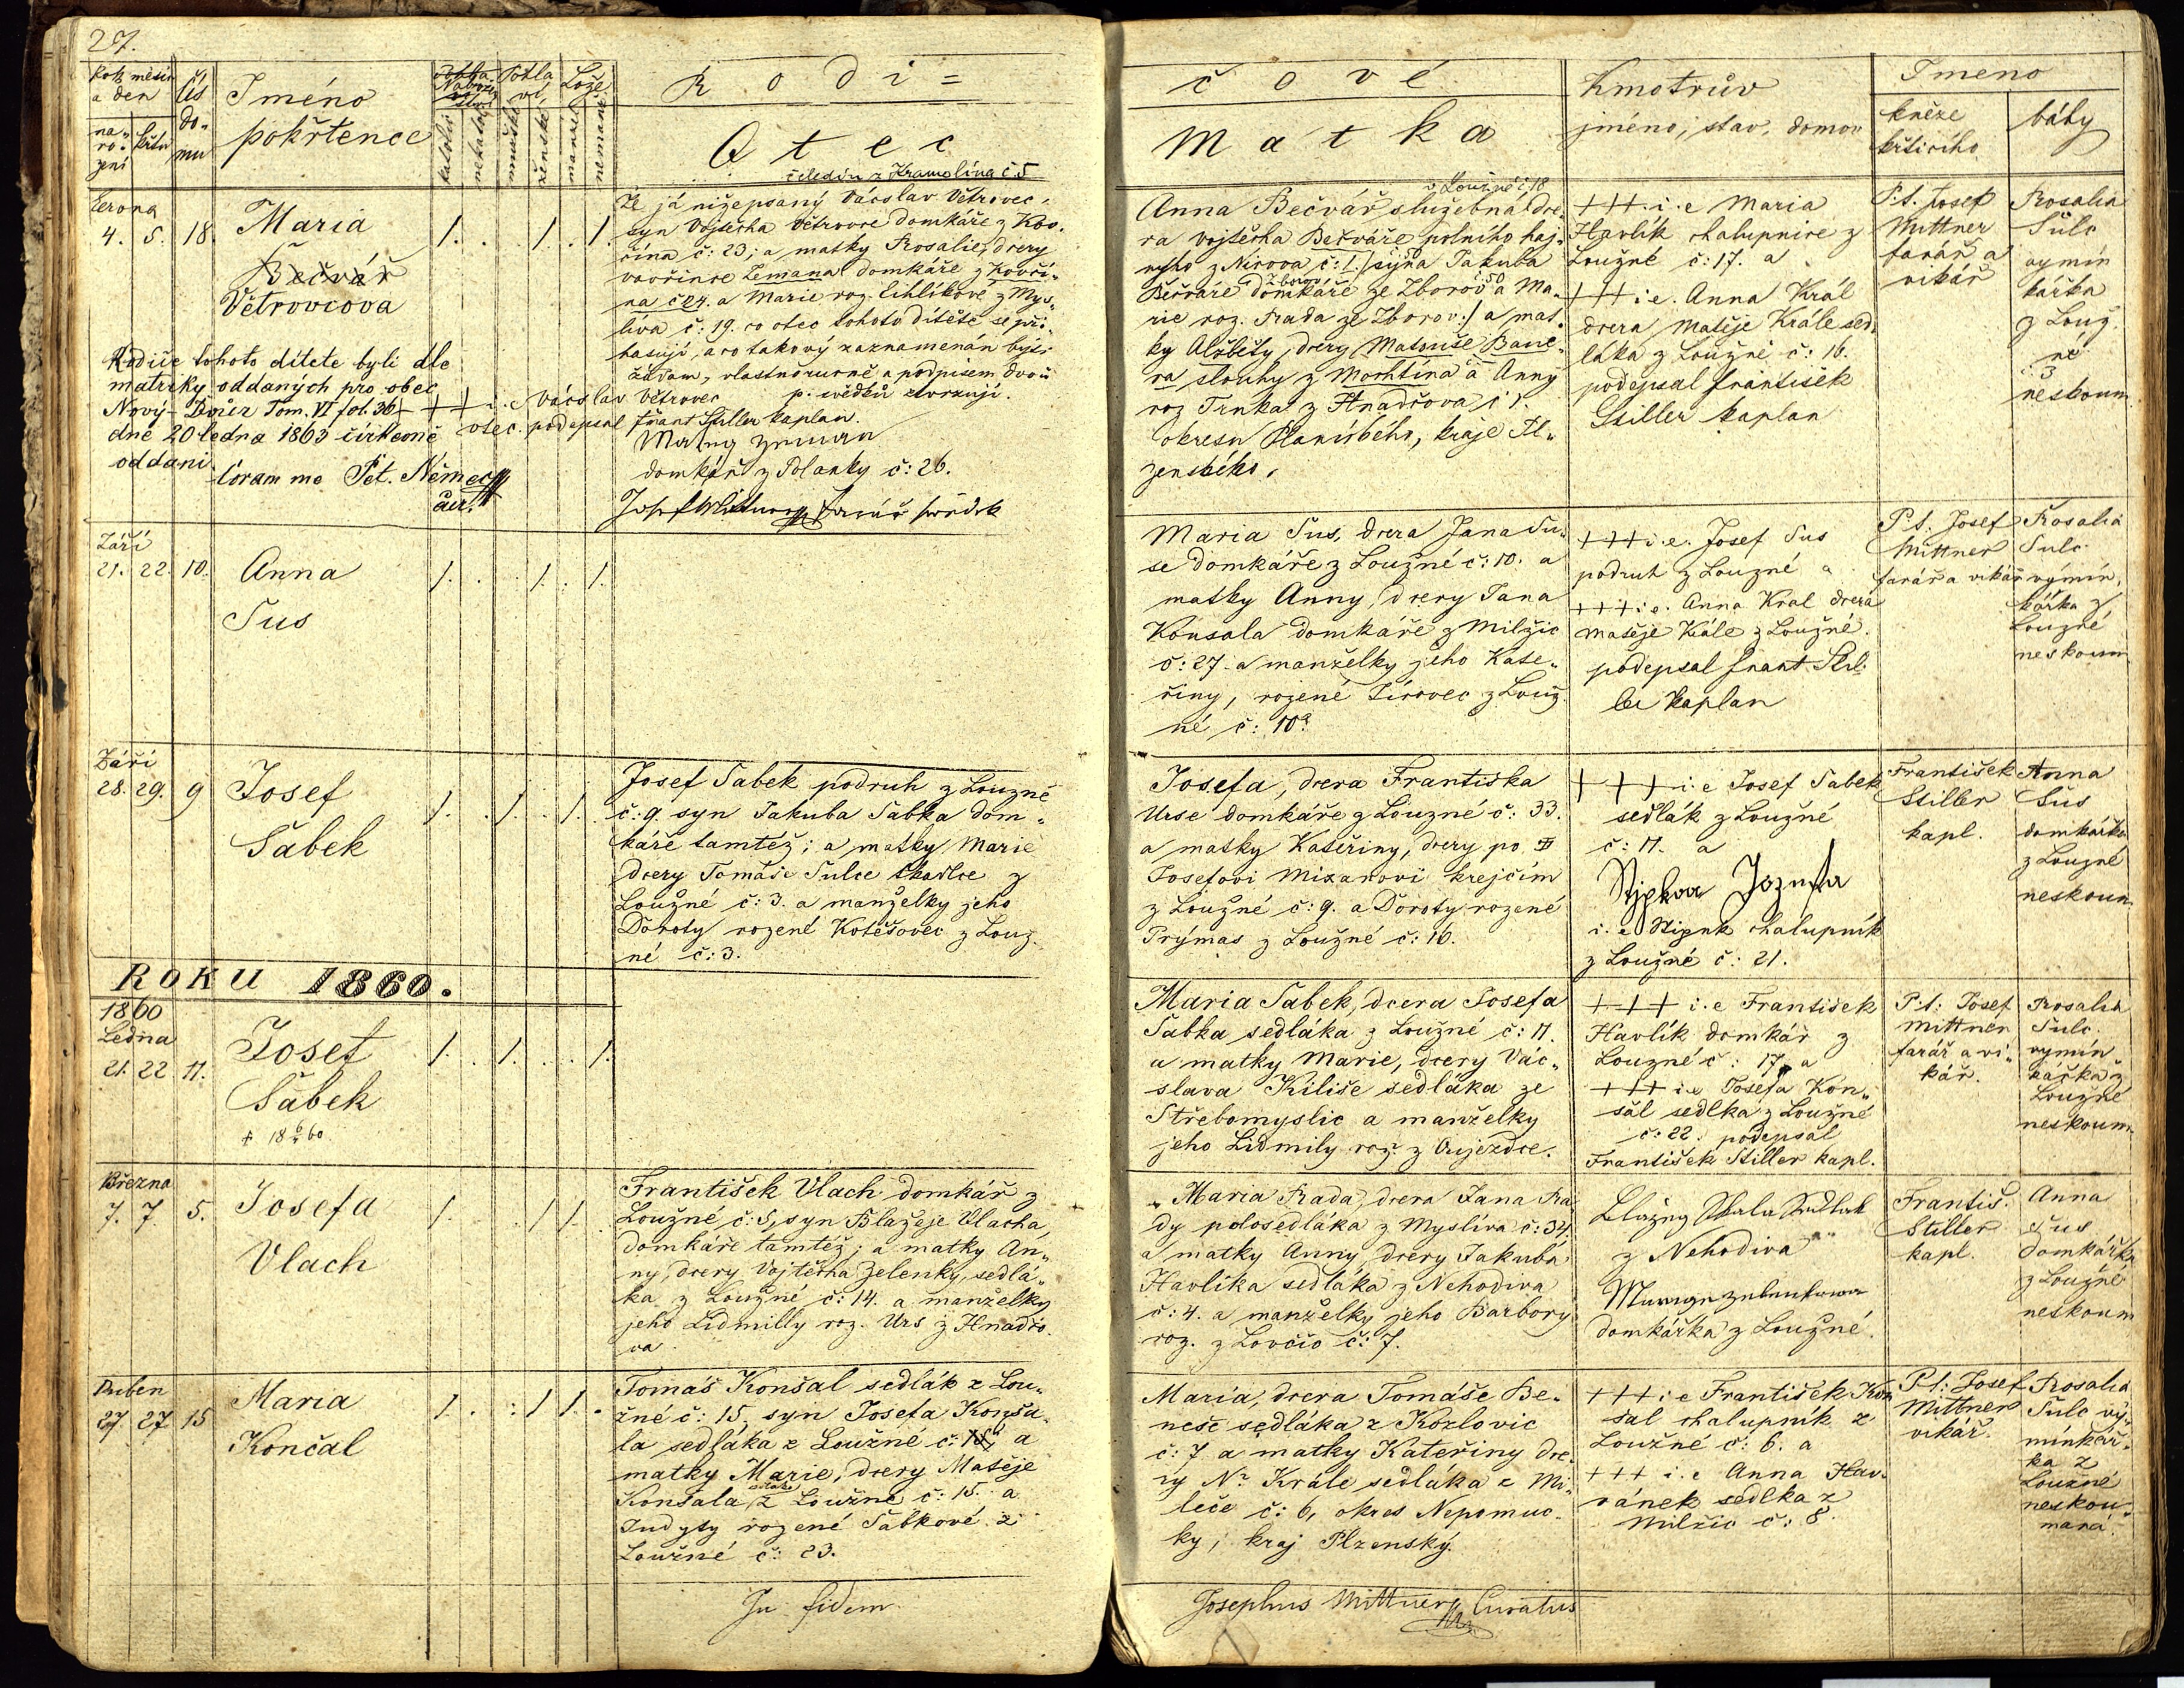 27.
Rok měsíc
a den
na-
ro-
zení
křtu
Čís
do-
mu
Jméno
pokřtence
Nábožen
ství
katolic
nekatol
Pohla
ví
mužské
ženské
Lože
manžel
nemanž
R o d i =
O t e c
čeledín z Kramolína č 5
č o v é
M a t k a
Kmotrův
jméno, stav, domov
Jmeno
kněze
křticího
báby
Června
4. 5. 18.
Maria
Bečvář
Větrovcova
1. 1. 1.
Rodiče tohoto dítete byli dle
matriky oddaných pro obec
Nový-Dvůr Tom. VI fol. 36
dne 20 ledna 1863 církevně
oddani.
Coram me Pet. Němec
Že já nížepsaný Václav Větrovec,
syn Vojtěcha Větrovce domkáře z Kov-
řína č: 23; a matky Rosalie, dcery
vavřince Zemana domkáře z Kovří-
na č 24. a Marie roz. Cihlíkové z Mys-
líva č: 19. co otec tohoto dítěte se při-
hasuji, a co takový zaznamenán býti
žádám, vlastnoručně a podpisem dvou
p. svědků ztvrzuji.
+++ i. e Václav Větrovec
otec. podepsal Frant Stiller kaplan.
Matieg Zeman
domkář z Polanky č: 26.
Josef Mittner farář svědek
v Loužné č. 18
Anna Bečvář služebná dce-
ra vojtěcha Bečváře polního haj-
ného z Nirova č: 1. /: syna Jakuba
Bečváře domkáře ze Zborov č 50 a Ma-
rie roz. Rada ze Zborov :/ a mat-
ky Alžběty, dcery Matouše Baue-
ra slouhy z Mochtína a Anny
roz Trnka z Hnadčova č 1.
okresu Planického, kraje Pl-
zenského.
+++ i. e Maria
Havlík chalupnice z
Loužné č: 17. a
+++ i. e. Anna Král
dcera Matěje Krále sed-
láka z Loužné č: 16.
podepsal František
Stiller kaplan
P. t. Josef
Mittner
farář a
vikář
Rosalia
Šulc
vymín
kářka
z Louž
né
č. 3
neskoum.
Září
21. 22. 10.
Anna
Sus
1. 1. 1.
Maria Sus, dcera Jana Su-
se domkáře z Loužné č: 10. a
matky Anny, dcery Jana
Konsala domkáře z Milžic
č: 27. a manželky jeho Kate-
řiny, rozené Jírovec z Louž
né č: 10?
+++ i. e. Josef Sus
podruh z Loužné a
+++ i. e. Anna Kral dcera
Matěje Krále z Loužné.
podepsal Frant Stil-
ler kaplan
P. t. Josef
Mittner
farář a vikář
Rosalia
Šulc
výmín-
kářka z
Loužné
neskoum
Září
28. 29. 9
Josef
Šabek
1. 1. 1.
Josef Šabek podruh z Loužné
č: 9. syn Jakuba Šabka dom-
káře tamtéž; a matky Marie
dcery Tomáše Šulce tkadlce z
Loužné č: 3. a manželky jeho
Doroty rozené Kotěšovec z Louž
né č: 3.
Josefa, dcera Františka
Urse domkáře z Loužné č: 33.
a matky Kateřiny, dcery po
Josefovi Mixanovi krejčím
z Loužné č: 9. a Doroty rozené
Prýmas z Loužné č: 16.
+++ i. e Josef Šabek
sedlák z Loužné
č: 11. a
i. e Stipek chalupník
z Loužné č: 21.
František
Stiller
kapl.
Anna
Sus
domkářka
z Loužné
neskoum.
ROKU 1860.
1860
Ledna
21. 22 11.
Josef
Šabek
1. 1. 1.
Maria Šabek, dcera Josefa
Šabka sedláka z Loužné č: 11.
a matky Marie, dcery Vác-
slava Kiliše sedláka ze
Střebomyslic a manželky
jeho Lidmily roz. z Aujezdce.
+++ i. e František
Havlík domkář z
Loužné č: 17. a
+++ i. e Josefa Kon-
šal sedlka z Loužné
č: 22. podepsal
František Stiller kapl.
P. t: Josef
Mittner
farář a vi-
kář.
Rosalia
Šulc.
vymín
kářka z
Loužné
neskoum.
Března
7. 7. 5.
Josefa
Vlach
1. 1 1.
František Vlach domkář z
Loužné č: 5, syn Blažeje Vlacha,
domkáře tamtéž; a matky An-
ny, dcery Vojtěcha Zelenky, sedlá-
ka z Loužné č: 14. a manželky
jeho Lidmilly roz. Urs z Hnadčo-
va.
Maria Rada, dcera Jana Ra-
dy polosedláka z Myslíva č: 34.
a matky Anny, dcery Jakuba
Havlíka sedláka z Nehodiva
č: 4. a manželky jeho Barbory
roz. z Lovčic č: 7.
Blažeg Skala Sedlak
z Nehodiva a
domkářka z Loužné.
Františ.
Stiller
kapl.
Anna
Sus
domkářka
z Loužné
neskoum
Duben
27. 27 15
Maria
Končal
1. 1 1.
Tomáš Konšal sedlák z Lou-
žné č: 15, syn Josefa Konša-
la sedláka z Loužné č: 15, a
matky Marie, dcery Matěje
Konšala z Loužné č: 15. a
Judyty rozené Šabkové z
Loužné č: 23.
Maria, dcera Tomáše Be-
neše sedláka z Kozlovic
č: 7 a matky Kateřiny dce-
ry N. Krále sedláka z Mi-
leče č: 6, okres Nepomuc-
ky, kraj Plzenský.
+++ i e František Kon
šal chalupník z
Loužné č: 6. a
+++ i. e Anna Hav-
ránek sedlka z
Milžic č: 8.
P. t: Josef
Mittner
vikář.
Rosalia
Šulc vý-
minkář-
ka z
Loužné
neskou-
maná.
In fidem
Josephus Mittner Curatus